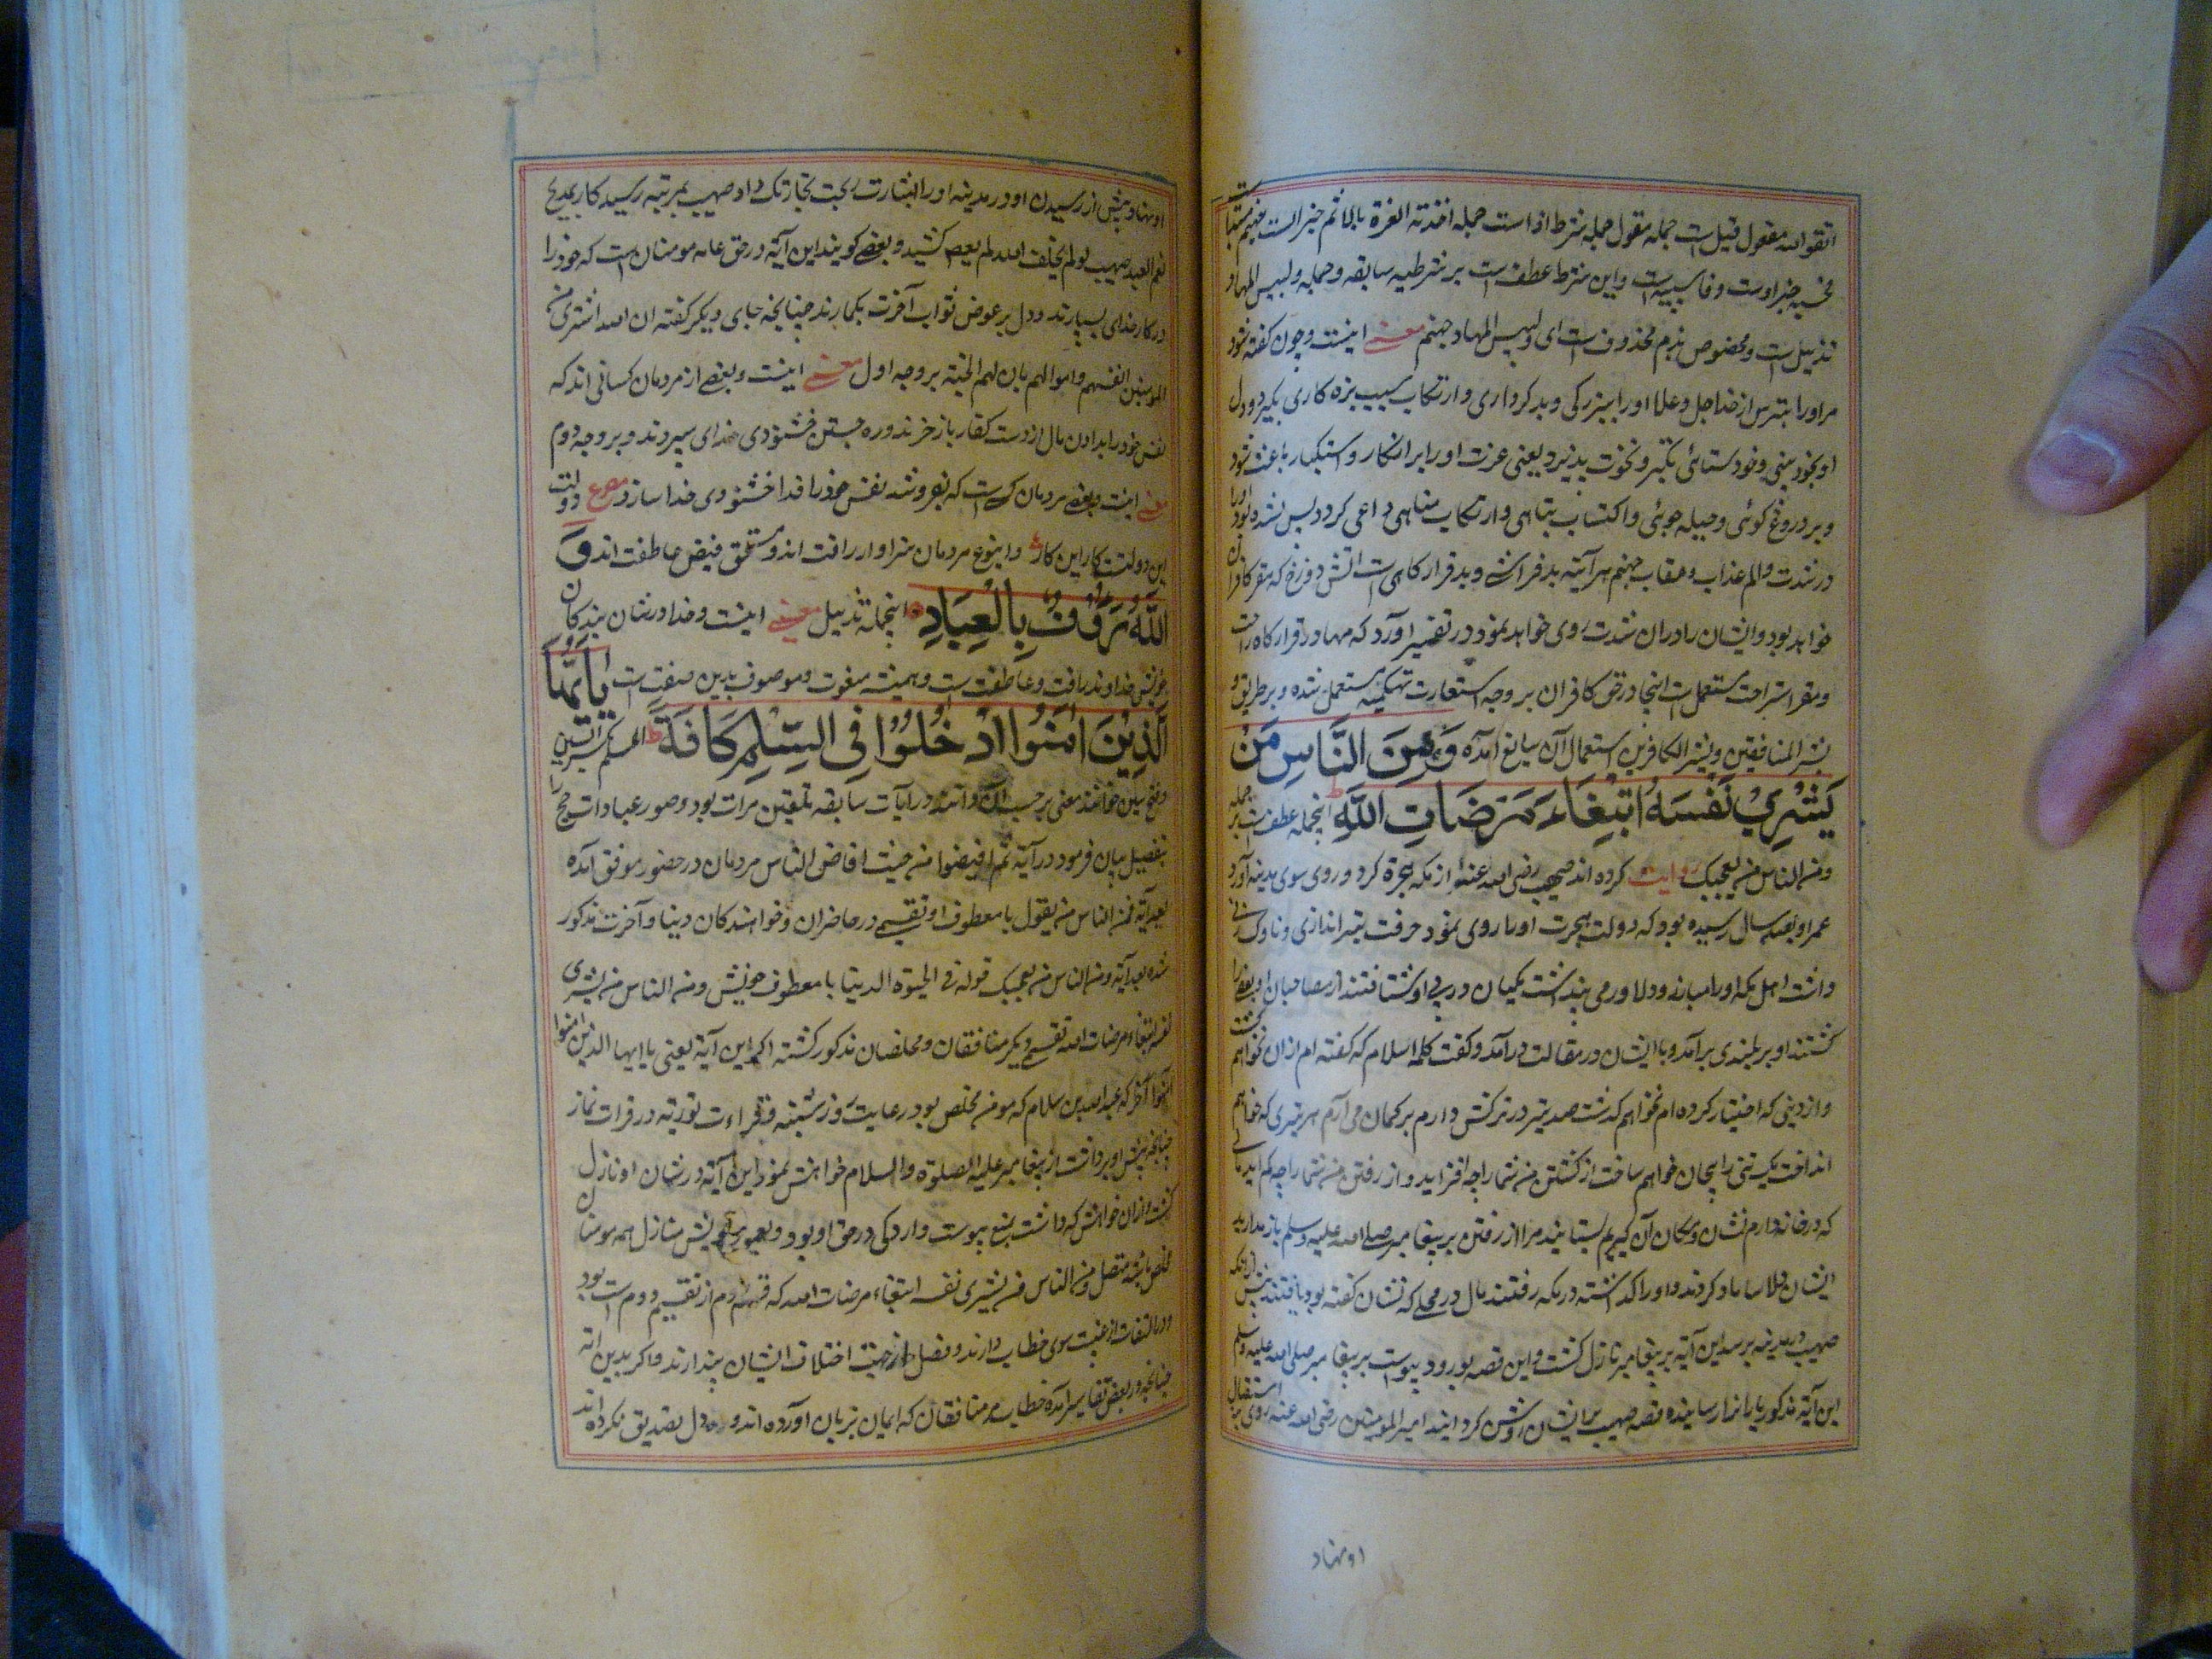 اتقوا الله مفعول قیل است جمله مقول جمله شرط اذا است جمله اخذته العزة بالاثم جزا است فجهنم مبتدا
حسبه خبر اوست وفا سببیه است واین شرط عطف است بر شرطیه سابقه وجمله ولبئس المهاد
تذییل است ومخصوص بذم محذوف است ای ولبئس المهاد جهنم معنی اینست وچون گفته شود
مر اورا بترس از خدا جل وعلا اورا بزرگی وبدکرداری وارتکاب سبب بزه کاری بگیرد ودل
او بخود بینی وخود ستائی تکبر ونخوت پذیرد یعنی عزت اورا بر انکار واستکبار باعث شود
وبر دروغ گوئی وحیله جوئی واکتساب تباهی وارتکاب مناهی داعی گردد پس بسنده بود اورا
در شدت والم عذاب وعقاب جهنم هر آینه بد فراشے وبد قرارگاهی است آتش دوزخ که مقر کافران
خواهد بود وایشان را دران شدت روی خواهد نمود در تفسیر آورد که مهاد در قرارگاه راحت
ومقر استراحت مستعمل است اینجا در حق کافران بر وجه استعارت تهکمیه مستعمل شده وبر طریق و
بشر المنافقین وبشر الکافرین استعمال آن سایغ آمده وَمِنَ النَّاسِ مَنْ
يَشْرِيْ نَفْسَهُ ابْتِغَاءَ مَرْضَاتِ اللّٰهِ ط اینجمله عطف است بر جمله
ومن الناس من یعجبک روایت کرده اند صهیب رضی الله عنه از مکه هجرة کرد وروی سوی مدینه آورد
عمر او بصد سال رسیده بود که دولت هجرت اورا روی نمود حرفت تیراندازی وناوک زنی
داشت اهل مکه اورا مبارز ودلاور می پنداشت مکیان در پی او شتافتند از مصاحبان او بعضی را
کشتند او بر بلندی بر آمد وبا ایشان در مقالت درآمد وگفت کلمه اسلام که گفته ام ازان نخواهم گشت
واز دینی که اختیار کرده ام نخواهم گذشت صد تیر در ترکش دارم بر کمان می آرم هر تیری که خواهم
انداخت یک تنی را بیجان خواهم ساخت از کشتن من شما را چه افزاید واز رفتن من شما را چه کم آید مالی
که در خانه دارم نشان ومکان آن گیریم بستانید مرا از رفتن بر پیغامبر صلی الله علیه وسلم باز مدارید
ایشان دلاسا باد کردند واورا گذاشته در مکه رفتند مال در محلے که نشان گفته بود یافتند پیش از آنکه
صهیب در مدینه برسد این آیة بر پیغامبر نازل گشت واین قصه بورود پیوست بر پیغامبر صلی الله علیه وسلم
این آیة مذکور یارانرا رسانیده قصه صهیب بر ایشان روشن گردانید امیر المومنین رضی الله عنه روی باستقبال
او نهاد
او نهاد وپیش از رسیدن او در مدینه اورا بشارت ربحت تجارتک داد صهیب بمرتبه رسید کار بمدیح
نعم العبد صهیب لو لم یخف الله لم یعصه کشید وبعضے گویند این آیة در حق عامه مومنان است که خود را
در کار خدای بسپارند ودل بر عوض ثواب آخرت بگمارند چنانچه جای دیگر گفته ان الله اشتری من
المومنین انفسهم واموالهم بان لهم الجنة بر وجه اول معنے اینست وبعضے از مردمان کسانی اند که
نفس خود را بدادن مال از دست کفار باز خرند وره جستن خشنودی خدای سپردند وبر وجه دوم
معنے اینست وبعضے مردمان کسے است که بفروشند نفس خود را فدا خشنودی خدا سازد مصرع دولت
این دولت کار این کار ع واینوع مردمان سزاوار رافت اند ومستحق فیض عاطفت اند وَ
اللّٰهُ رَؤُفٌ بِالْعِبَادِ اینجمله تذییل معنے اینست وخدا در شان بندگان
خویش خداوند رافت وعاطفت است وهمیشه منعوت وموصوف بدین صفت است يَا أَيُّهَا
الَّذِيْنَ اٰمَنُوا ادْخُلُوْا فِى السِّلْمِ كَافَّةً ط السلم بکسر السین
وفتح سین خوانند معنی بر حسب آن دانند در آیات سابقه تلقین مرات بود وصور عبادات حج را
بتفصیل بیان فرمود در آیة ثم افیضوا من حیث افاض الناس مردمان در حضور موقف آمده
بعد آیة فمن الناس من یقول با معطوف او تقسیمے در حاضران وخوانندگان دنیا وآخرت مذکور
شده بعد آیة ومن الناس من یعجبک قوله فی الحیوة الدنیا با معطوف خویش ومن الناس من یشری
نفسه ابتغاء مرضات الله تقسیمے دیگر منافقان ومخلصان مذکور گشته اکنون این آیة یعنی یا ایها الذین امنوا
که عبدالله بن سلام که مومن مخلص بود رعایت روز شنبه وقراءت توریة در قرات نماز
چنانچه پیش او برداشت از پیغامبر علیه الصلوة والسلام خواهش نمود این آیة در شان او نازل
گشت ازان خواهش که داشت بمنع پیوست وارد کی در حق او بود وبعموم خویش شامل همه مومنان
مخلص باشد متصل ومن الناس من یشری نفسه ابتغاء مرضات الله که قسم دوم از تقسیم دوم است بود
ودر التفات از غیبت سوی خطاب دارند وفصل از جهت اختلاف ایشان پندارند واگر بدین آیه
چنانچه در بعض تفاسیر آمده خطاب بر منافقان که ایمان بزبان آورده اند ودر دل تصدیق نکرده اند